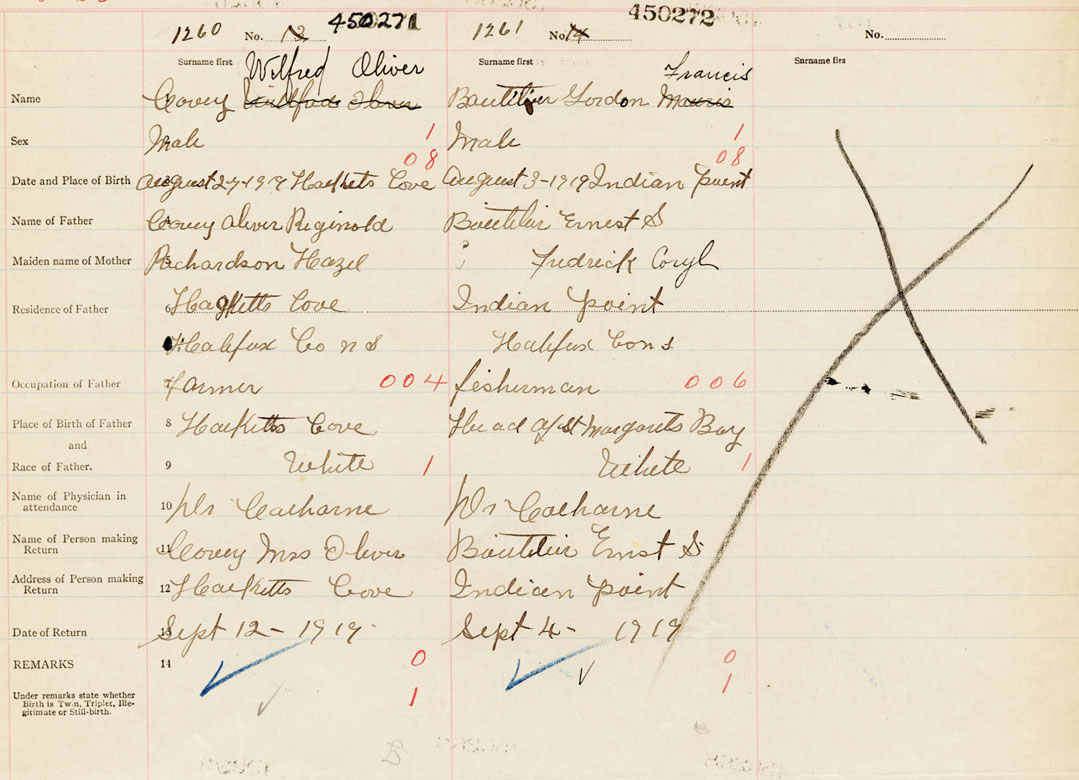 1260 No. 13 450271 1261 No. 14 450272 No.
Surname first Surname first Surname firs
Wilfred Oliver Francis
Name Covey Oliver Boutilier Gordon
Sex Male 1 Male 1
08 08
Date and Place of Birth August 27-1919 Hacketts Cove August 3-1919 Indian Point
Name of Father 4 Covey Oliver Reginold Boutilier Ernest S
Maiden name of Mother 5 Richardson Hazel Fredrick Coryl
Residence of Father 6 Hacketts Cove Indian Point
Halifax Co N S Halifax Co N S
Occupation of Father 7 Farmer 004 fisherman 006
Place of Birth of Father 8 Hacketts Cove Head of St Margarets Bay
and
Race of Father. 9 White 1 White 1
Name of Physician in
attendance 10 Dr Dr
Name of Person making
Return 11 Covey Mrs Oliver Boutilier Ernst S
Address of Person making
Return 12 Hacketts Cove Indian Point
Date of Return 13 Sept 12-1919 Sept 4- 1919
REMARKS 14 0 0
Under remarks state whether
Birth is Twin, Triplet, Ille-
gitimate or Still-birth. 1 1